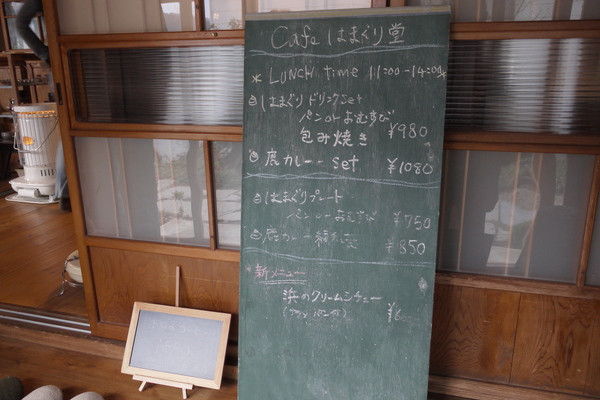 Cafe はまぐり堂
* LUNCH time 11:00-14:00
はまぐりドリンクset
パン or おむすび
包み焼き ¥980
鹿カレー set ¥1080
はまぐりプレート
パン or おむすび ¥750
鹿カレー ¥850
新メニュー
浜のクリームシチュー